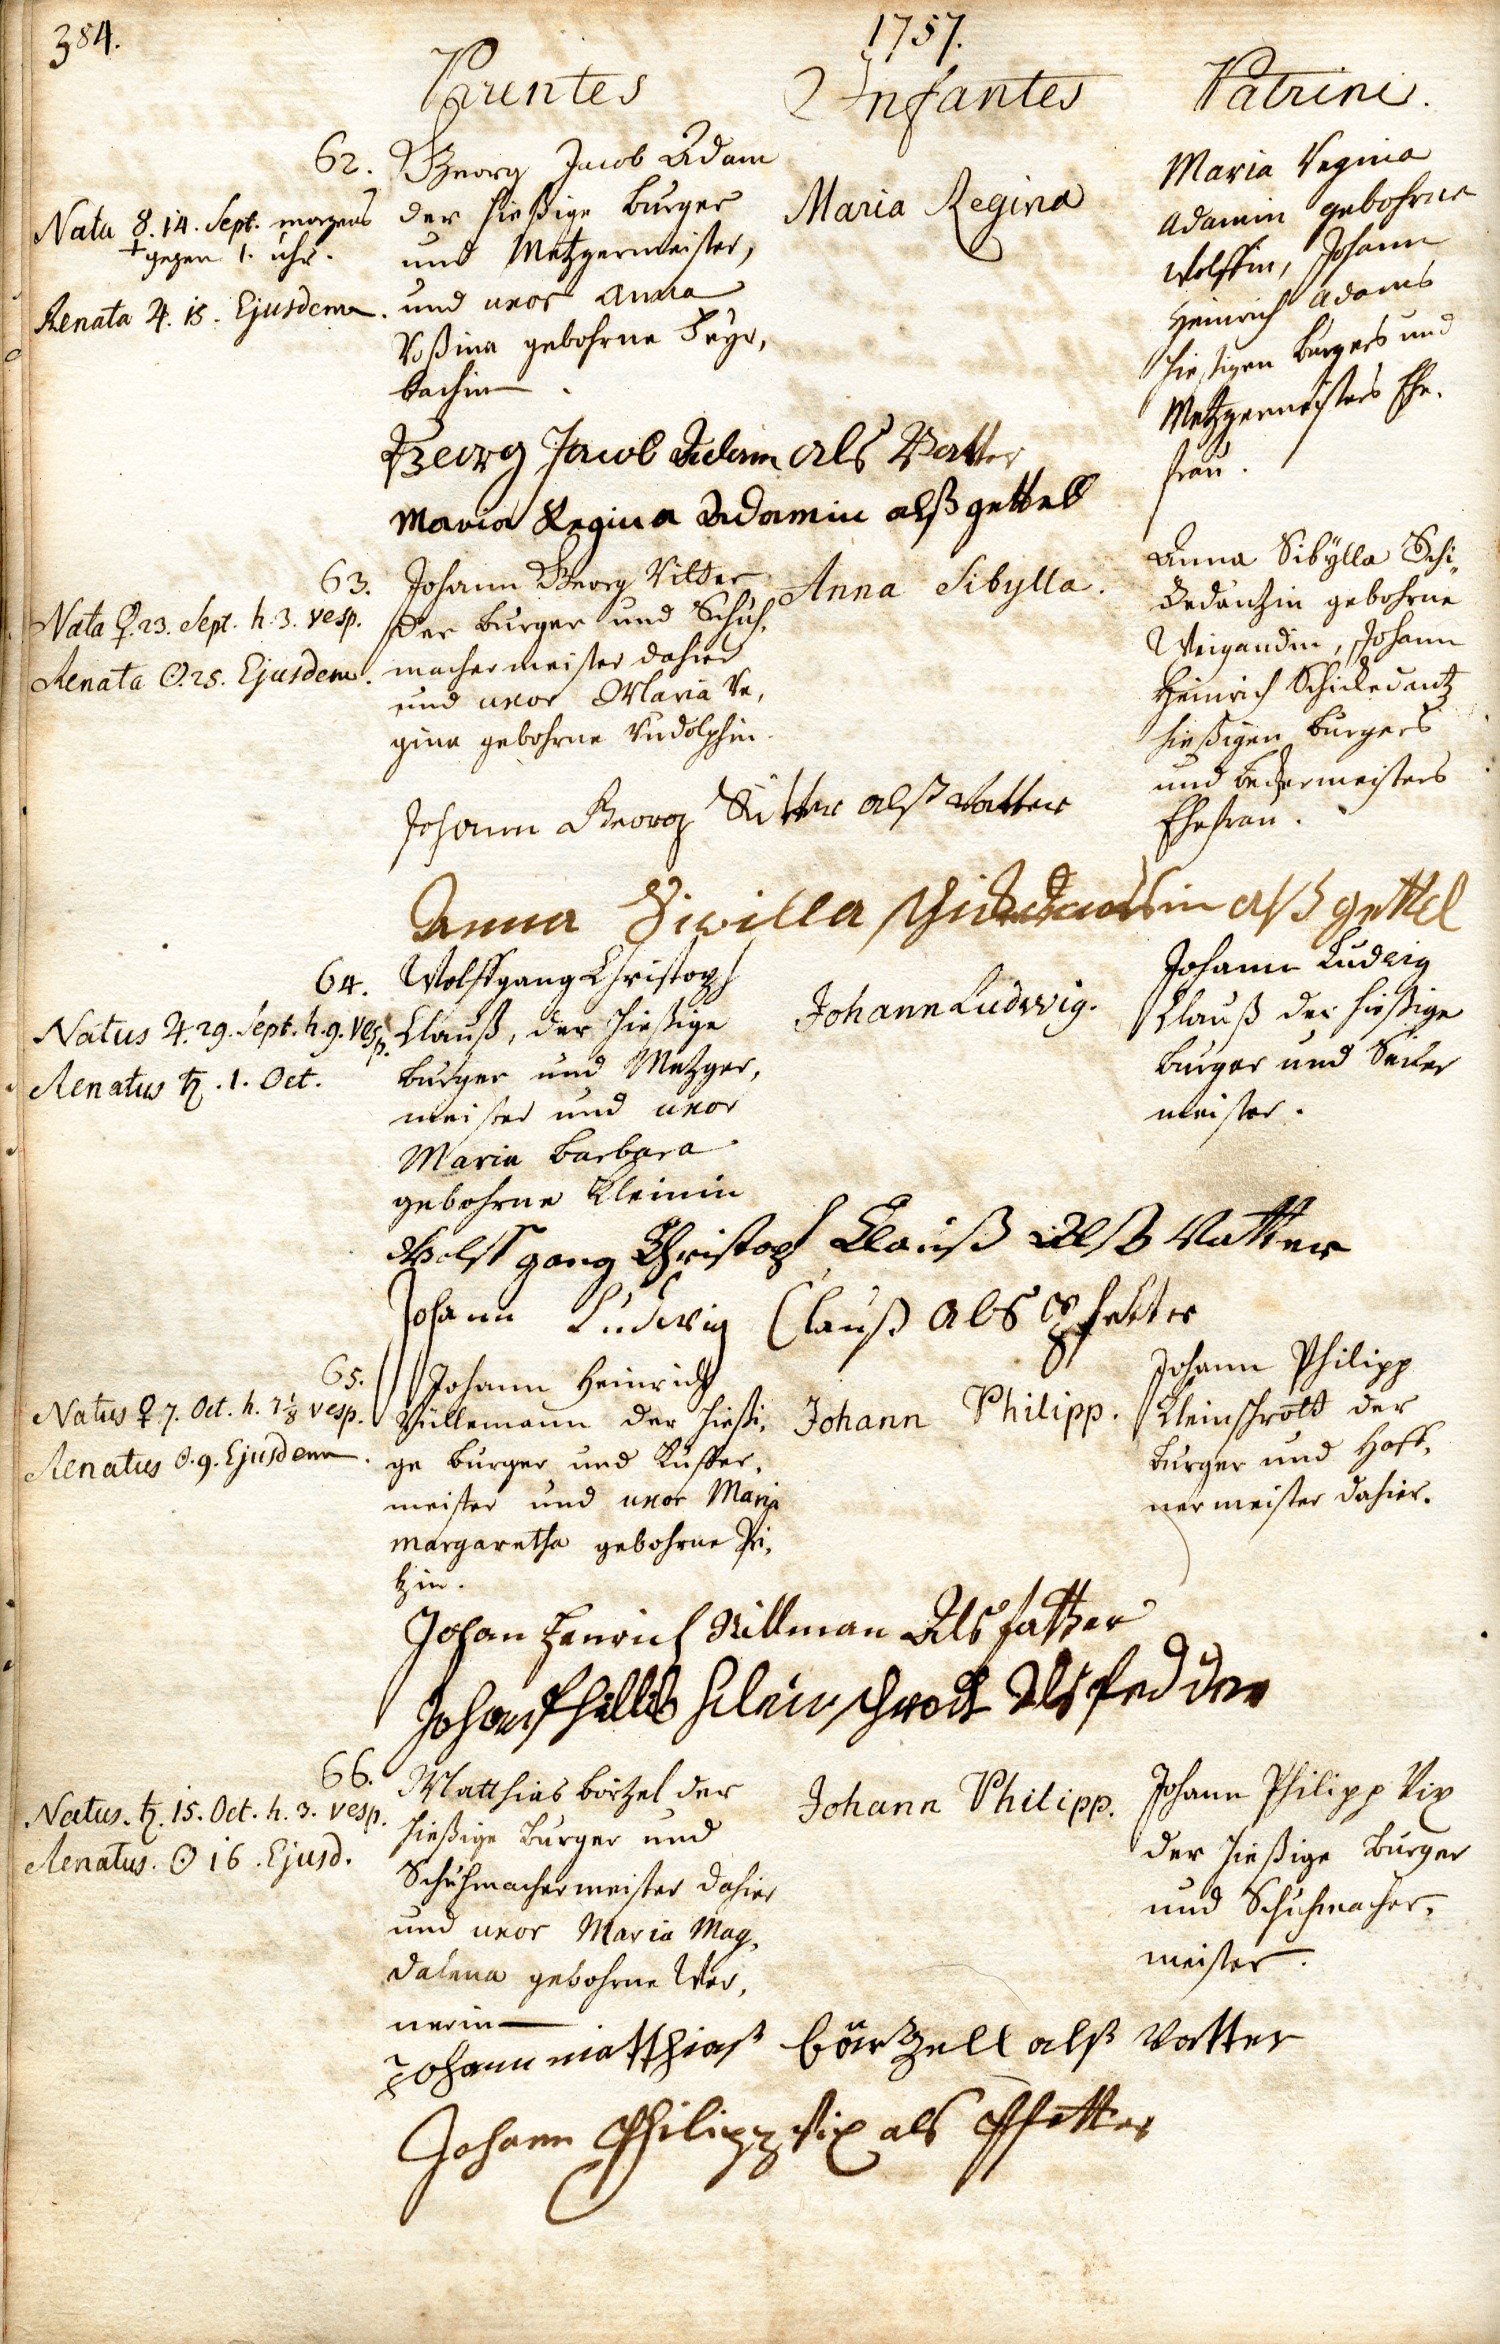 384.
1757.
Parentes
Infantes
Patrini.
62.
Nata ☿. 14. Sept. morgens
gegen 1. uhr.
Renata ♃. 15. Ejusdem.
Georg Jacob Adam
der hießige burger
und Metzgermeister,
und uxor Anna
Roßina gebohrne
bachin.
Maria Regina
Maria Regina
Adamin gebohrne
Wolffin, Johann
Heinrich Adams
hießigen burgers und
Metzgermeisters Ehe-
frau.
Georg Jacob Adam als Vatter
Maria Regina Adamin alß gettell
63.
Nata ♀. 23. Sept. h. 3. vesp.
Renata ☉. 25. Ejusdem.
Johann Georg Ritter
der burger und Schuh,
macher meister dahier
und uxor Maria Re,
gina gebohrne Rudolphin.
Anna Sibylla.
Anna Sibylla Schi,,
kedantzin gebohrne
Weigandin, Johann
Heinrich Schickedantz
hießigen burgers
und beckermeisters
Ehefrau.
Johann Georg Ritter alß vatter
Anna Sivilla alß gettel
64.
Natus ♃. 29. Sept. h. 9. vesp.
Renatus ♄. 1. Oct.
Wolffgang Christoph
Clauß, der hießige
burger und Metzger,
meister und uxor
Maria barbara
gebohrne Kleinin
Johann Ludwig.
Johann Ludwig
Clauß der hießige
burger und Seiler
meister.
Wolff gang Christoph Clauß Alß Vatter
Johann Ludwig Clauß als Pfetter
65.
Natus ♀. 7. Oct. h. 7⅛ vesp.
Renatus ☉. 9. Ejusdem.
Johann Heinrich
Küllemann der hießi,
ge burger und Küffer,
meister und uxor Maria
margaretha gebohrne
tzin.
Johann Philipp.
Johann Philipp
Kleinschrott der
burger und Haff,
ner meister dahier.
Johan Henrich Küllman Als fatter
Als pedder
66.
Natus. ♄. 15. Oct. h. 3. vesp.
Renatus. ☉ 16. Ejusd.
Matthias börtzel der
hießige burger und
Schuhmachermeister dahier
und uxor Maria Mag,
dalena gebohrne Wer,
nerin
Johann Philipp.
Johann Philipp Vix
der hießige burger
und Schuhmacher,
meister.
Johann matthias börtzell alß Vatter
Johann Philipp Vix als Pfetter